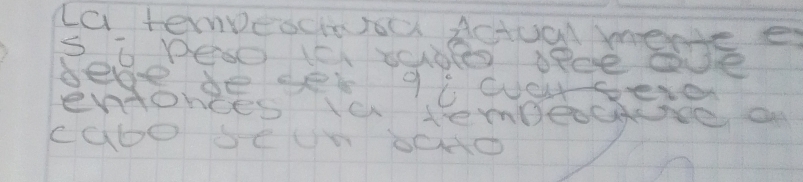 La temperatura Actual mente e
s -6 pero la radio dece que
debe de ser 9 ¿ cual sera
entonces la temperature a
cabo de un rato